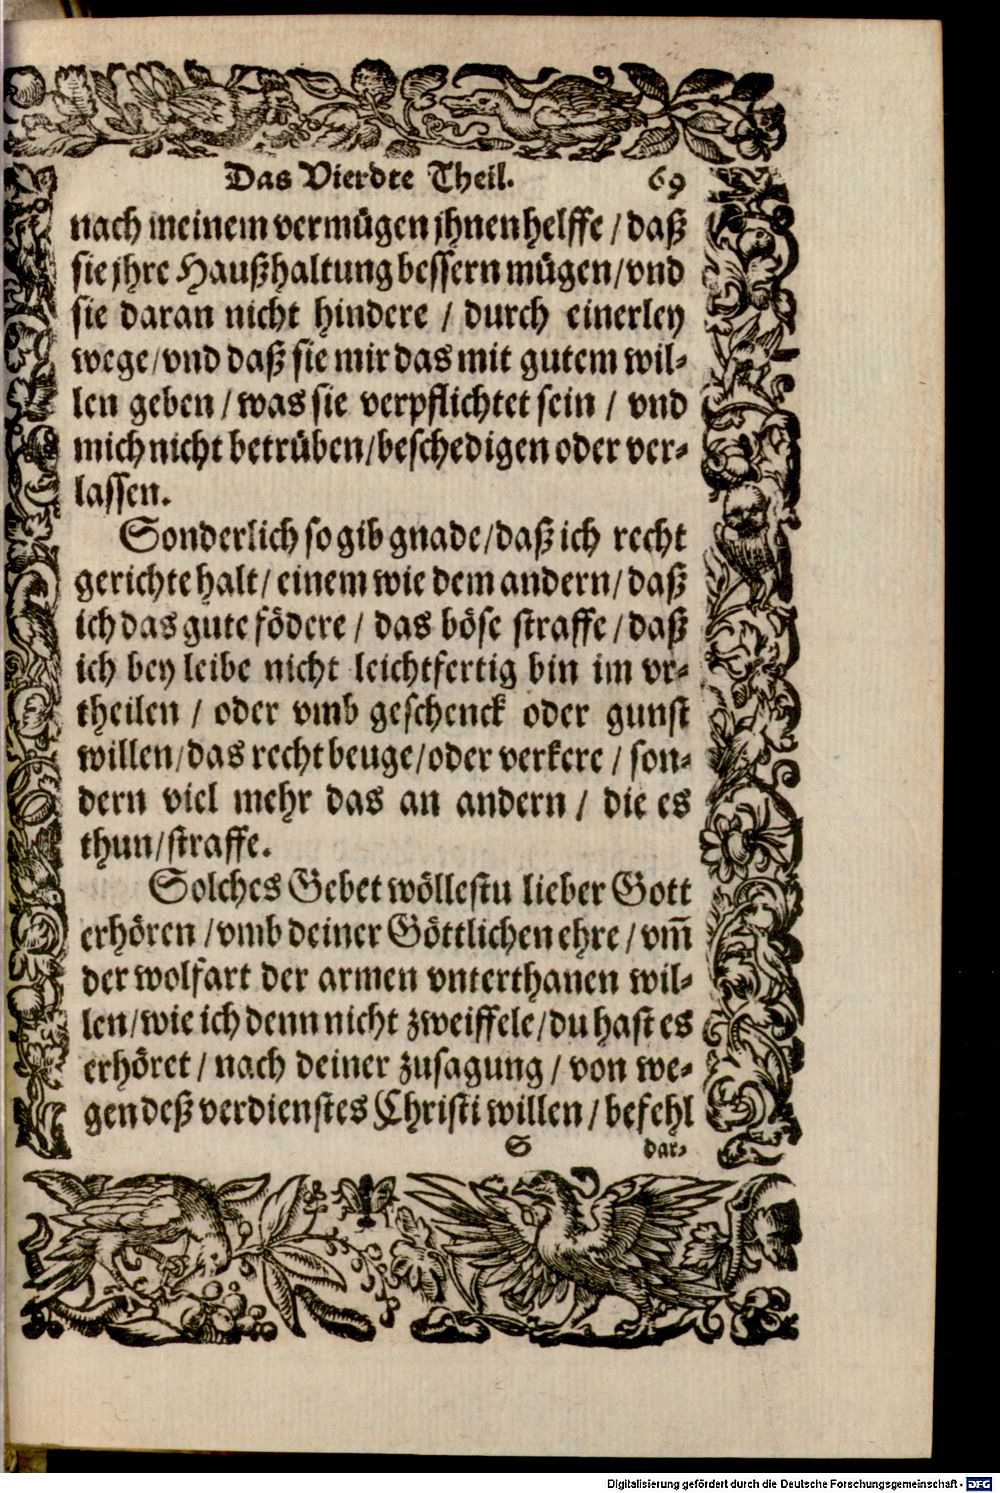 Das Vierdte Theil. 69
nach meinem vermügen jhnen helffe / daß
sie jhre Haußhaltung bessern mügen/vnd
sie daran nicht hindere / durch einerley
wege/vnd daß sie mir das mit gutem wil-
len geben / was sie verpflichtet sein / vnd
mich nicht betrüben/beschedigen oder ver-
lassen.
Sonderlich so gib gnade/daß ich recht
gerichte halt/ einem wie dem andern/ daß
ich das gute födere / das böse straffe / daß
ich bey leibe nicht leichtfertig bin im vr-
theilen / oder vmb geschenck oder gunst
willen/das recht beuge/oder verkere / son-
dern viel mehr das an andern / die es
thun/straffe.
Solches Gebet wöllestu lieber Gott
erhören / vmb deiner Göttlichen ehre / vm̄
der wolfart der armen vnterthanen wil-
len/wie ich denn nicht zweiffele/du hast es
erhöret / nach deiner zusagung / von we-
gen deß verdienstes Christi willen / befehl
S dar-
Digitalisierung gefördert durch die Deutsche Forschungsgemeinschaft - DFG